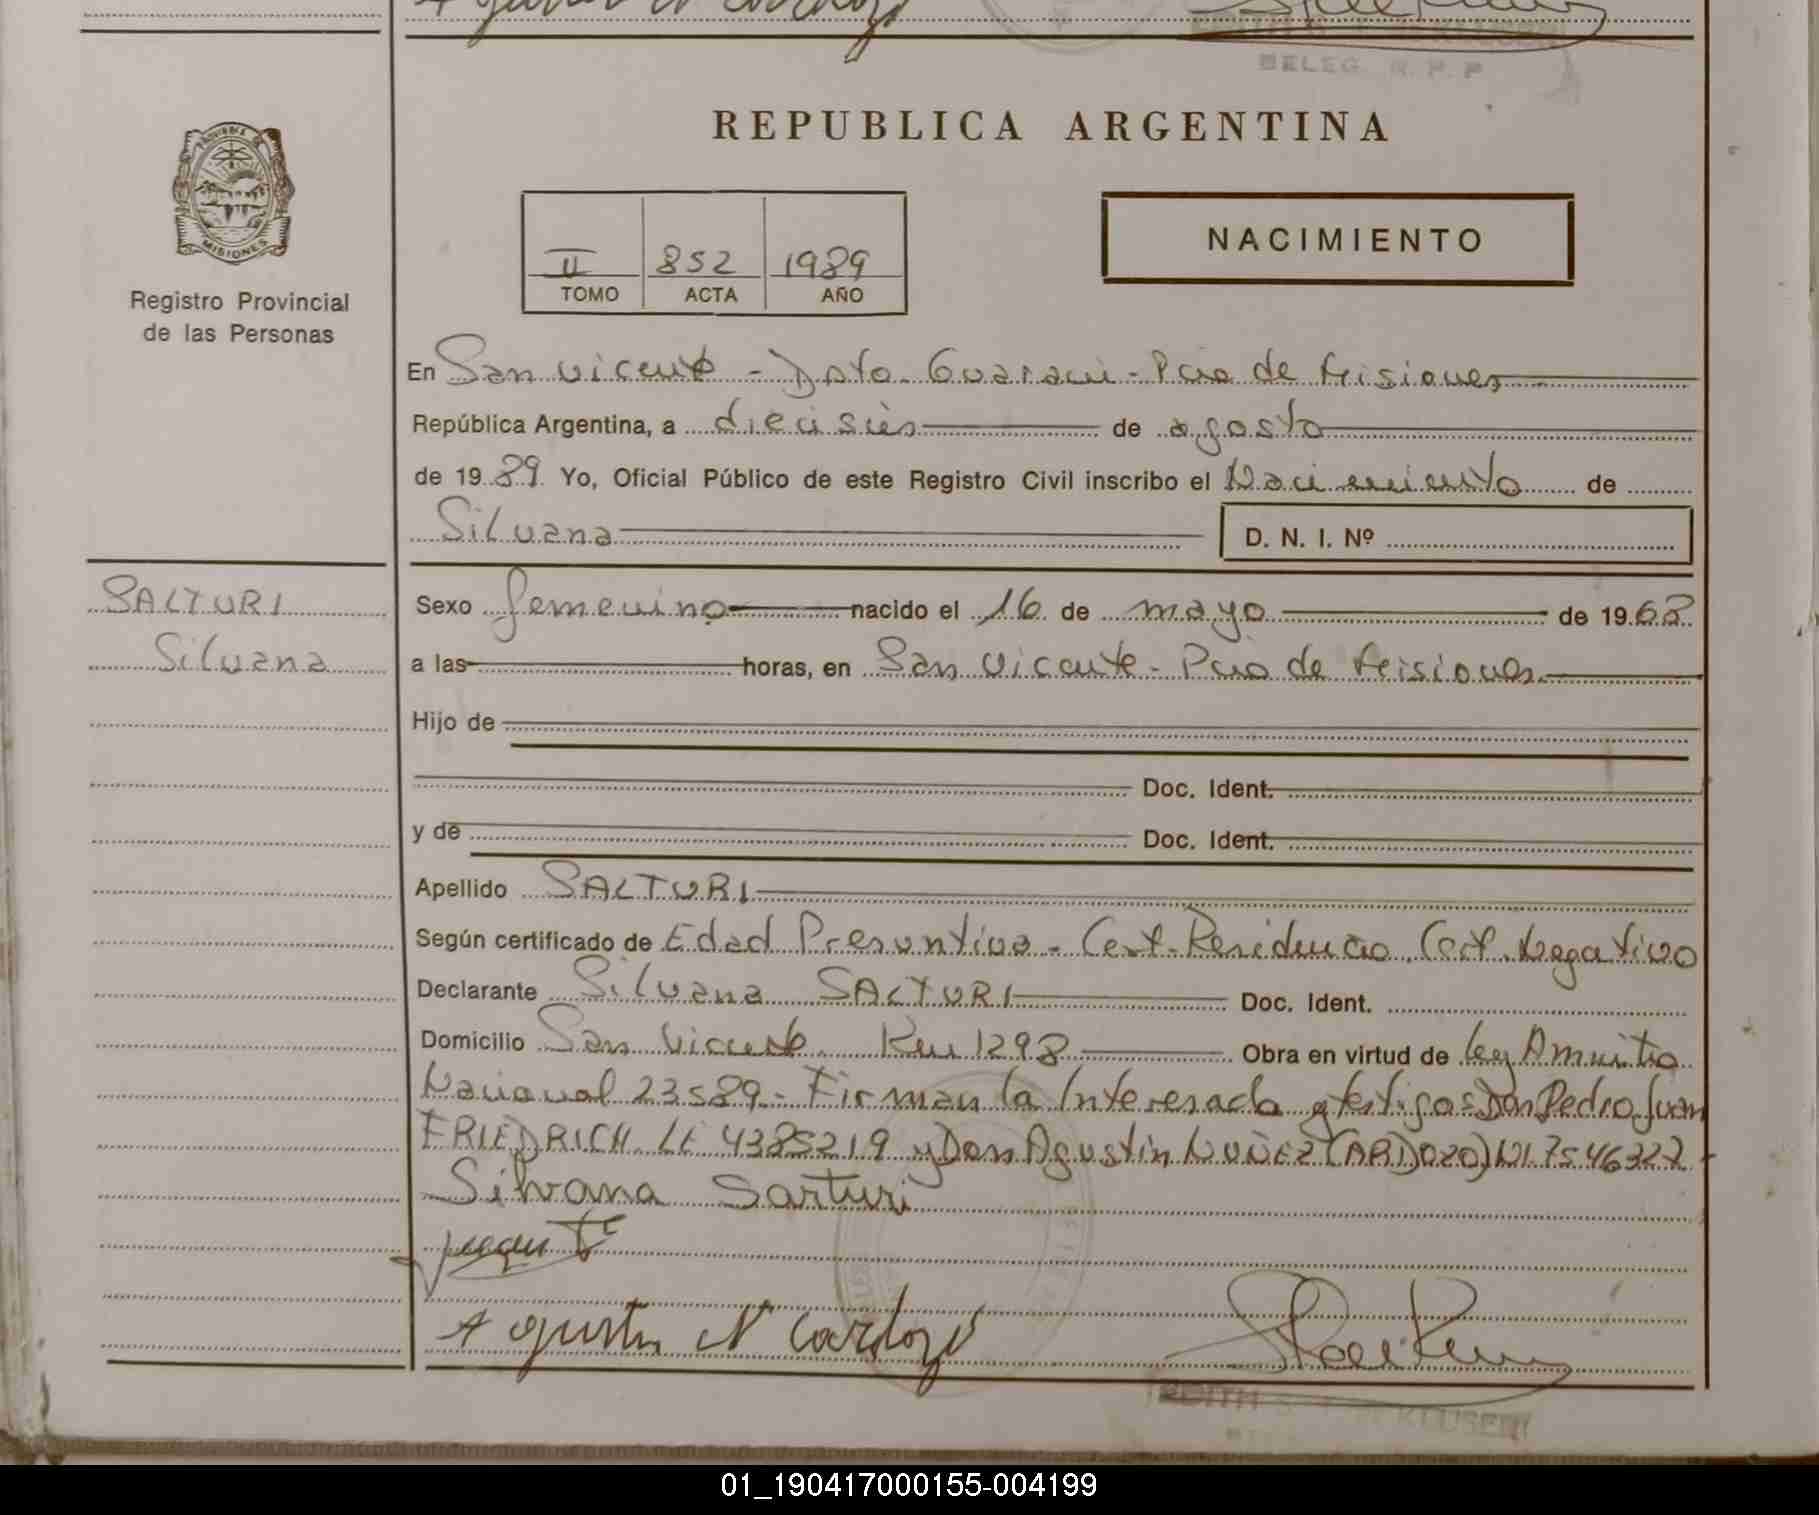 DELEG. R. P. P
REPUBLICA ARGENTINA
PROVINCIA DE
MISIONES
Registro Provincial
de las Personas
II 852 1989
TOMO ACTA AÑO
NACIMIENTO
En San Vicente - Dpto. Guarani - Pcia de Misiones
República Argentina, a diecisies de agosto
de 1989 Yo, Oficial Público de este Registro Civil inscribo el Nacimiento de
Silvana
D. N. I. Nº
SALTURI
Silvana
Sexo femenino nacido el 16 de mayo de 1968
a las horas, en San Vicente - Pcia de Misiones
Hijo de
Doc. Ident.
y de Doc. Ident.
Apellido SALTURI
Según certificado de Edad Presuntiva - Cert. Residencia. Cert. Negativo
Declarante Silvana SALTURI Doc. Ident.
Domicilio San Vicente Km 1298 Obra en virtud de ley Amnitia
Nacional 23589 - Firman la Interesada y testigos Don Pedro Juan
FRIEDRICH LE 4385219 y Don Agustin NUÑEZ (ARD020) NI 7546322
Silvana Sarturi
Agustin N Cardozo
EDITH S.
01_190417000155-004199